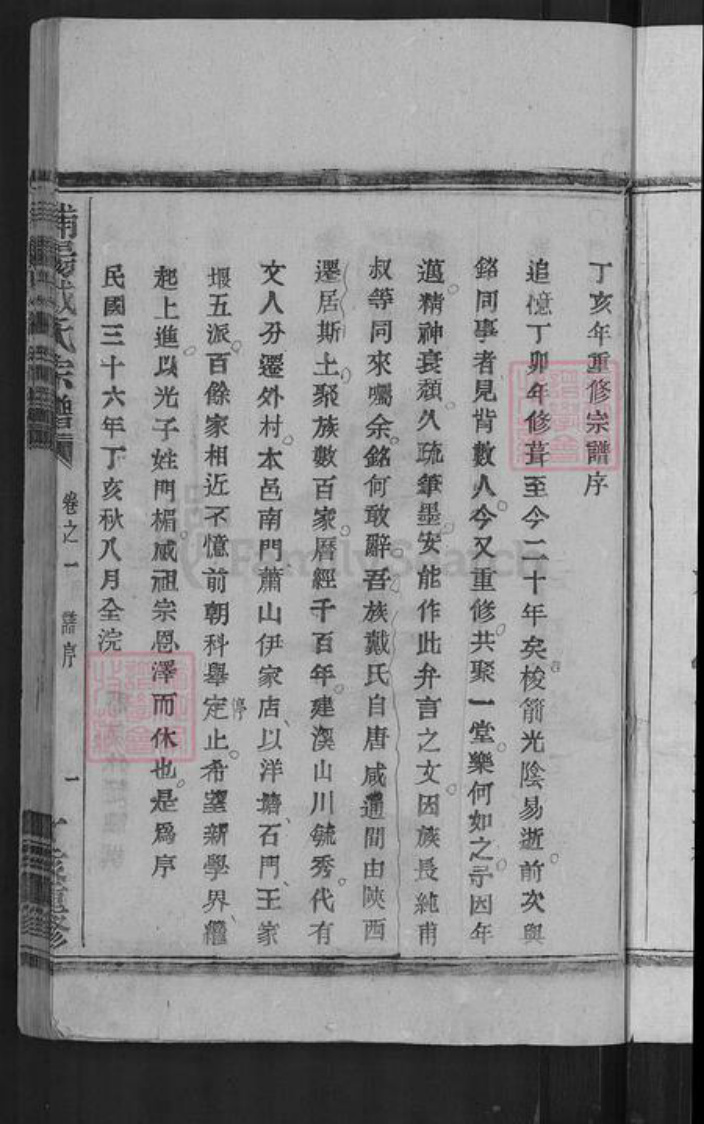 丁亥年重修宗譜序
追憶丁卯年修葺至今二十年矣梭箭光陰易逝前次與
銘同事者見背數人今又重修共聚一堂樂何如之予因年
邁精神衰頹久疏筆墨安能作此弁言之文因族長純甫
叔等同來囑余銘何敢辭吾族戴氏自唐咸通間由陝西
遷居斯土聚族數百家曆經千百年建溪山川毓秀代有
文人分遷外村本邑南門蕭山伊家店以洋塘石門王家
堰五派百餘家相近不憶前朝科舉定止希望新學界繼
停
起上進以光子姓門楣感祖宗恩澤而休也是爲序
民國三十六年丁亥秋八月全浣
氏宗譜
卷之一 譜序
一
重修
FamilySearch